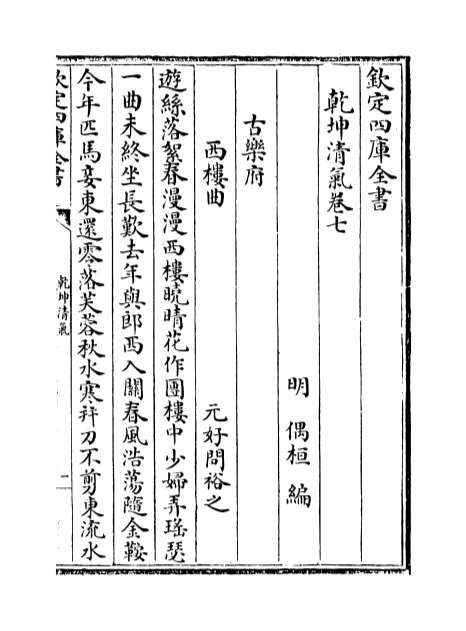 欽定四庫全書
乾坤清氣卷七
明 偶桓 編
古樂府
西樓曲 元好問裕之
遊絲落絮春漫漫西樓曉晴花作團樓中少婦弄瑤瑟
一曲未終坐長歎去年與郎西入關春風浩蕩隨金鞍
今年匹馬妾東還零落芙蓉秋水寒幷刀不剪東流水
欽定四庫全書
乾坤清氣